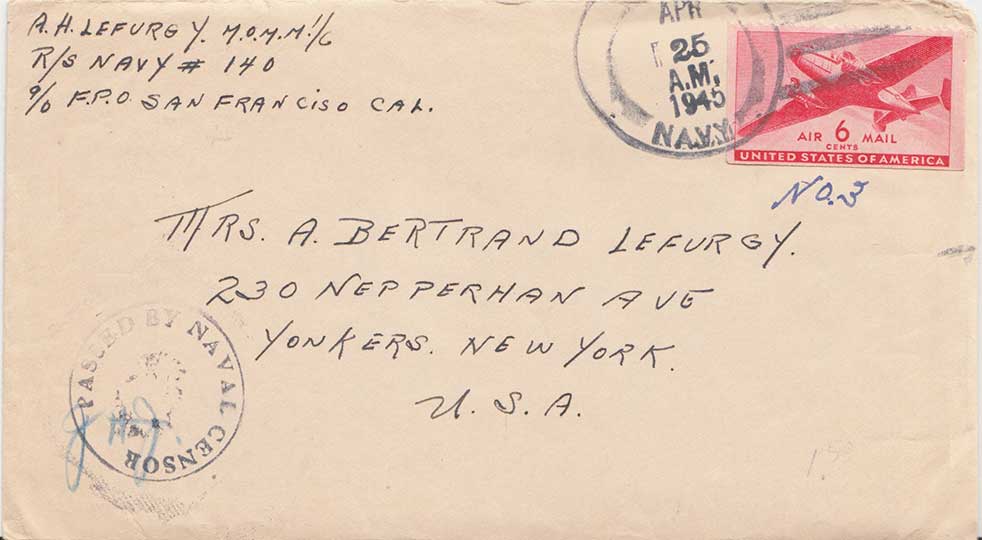 A.H. LEFURGY. M.O.M.M. 1/C
R/S NAVY # 140
c/o F.P.O. SAN FRANCISO CAL.
APR
25
A.M.
1945
NAVY
AIR 6 MAIL
CENTS
UNITED STATES OF AMERICA
NO. 3
MRS. A. BERTRAND LEFURGY.
230 NEPPERHAN AVE
YONKERS. NEW YORK.
U.S.A.
PASSED BY NAVAL CENSOR